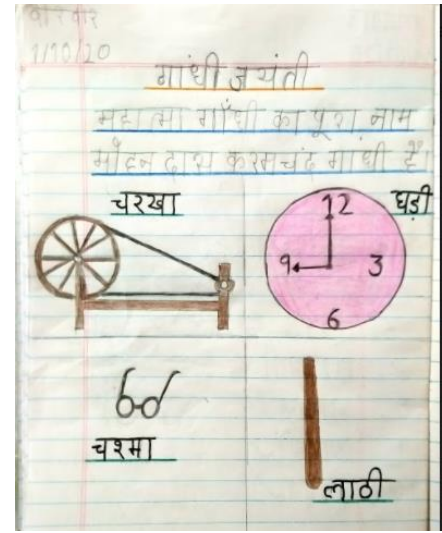 1/10/20
गांधी जयंती
महात्मा गाँधी का पूरा नाम
मोहन दास करमचंद गांधी है।
चरखा
घड़ी
12
9 3
6
चश्मा
लाठी